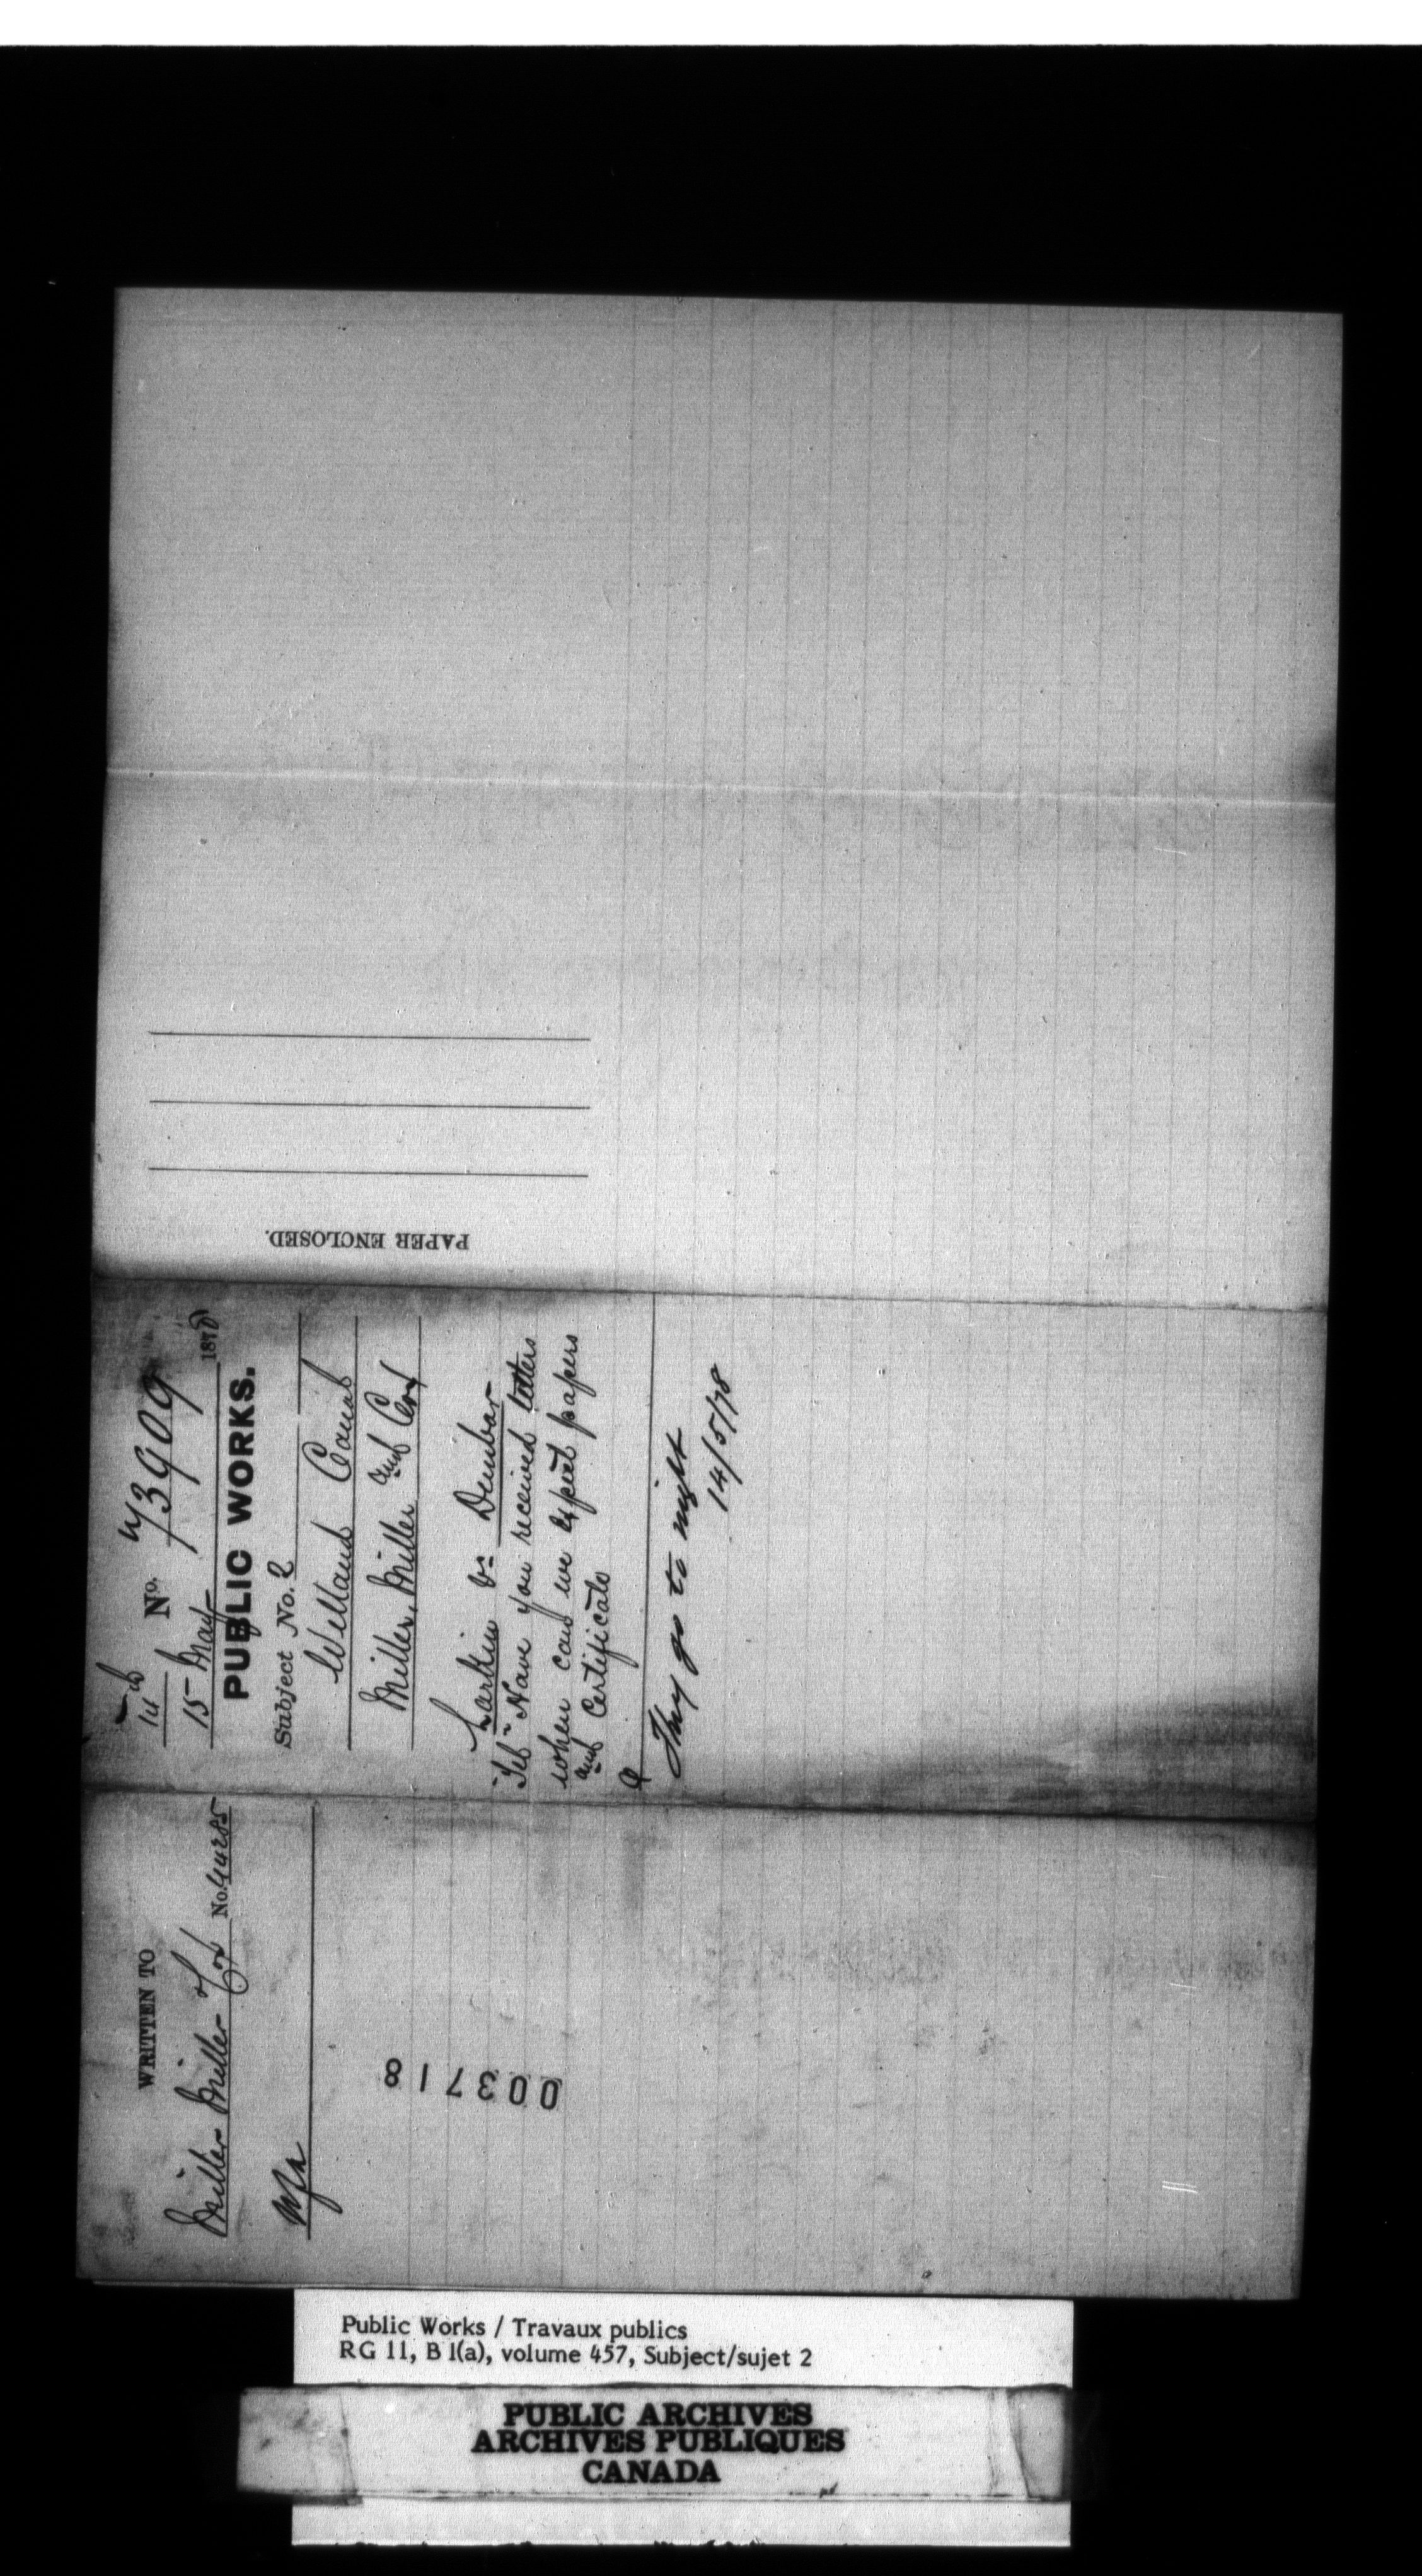 14
No. 73909
15 May 1878
PUBLIC WORKS.
Subject No. 2
Welland Canal
Miller, Miller and Cox
Larkin vs Dunbar
"Tel" Have you received letters
when can we expect papers
and Certificate
They go to night
14/5/78
PAPER ENCLOSED.
WRITTEN TO
Miller Miller & Cox No. 44285
003718
Public Works / Travaux publics
RG 11, B 1(a), volume 457, Subject/sujet 2
PUBLIC ARCHIVES
ARCHIVES PUBLIQUES
CANADA